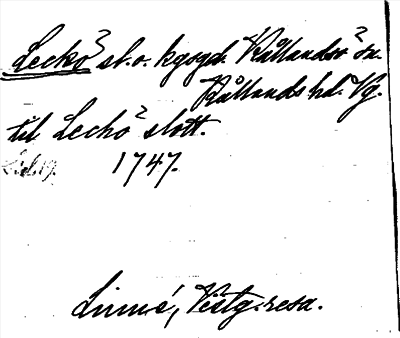 Leckö sl. o. kgsgd. Kållandsö sn.
Kållands hd. Vg.
til Lecko slott.
1747.
Linné, Västg. resa.